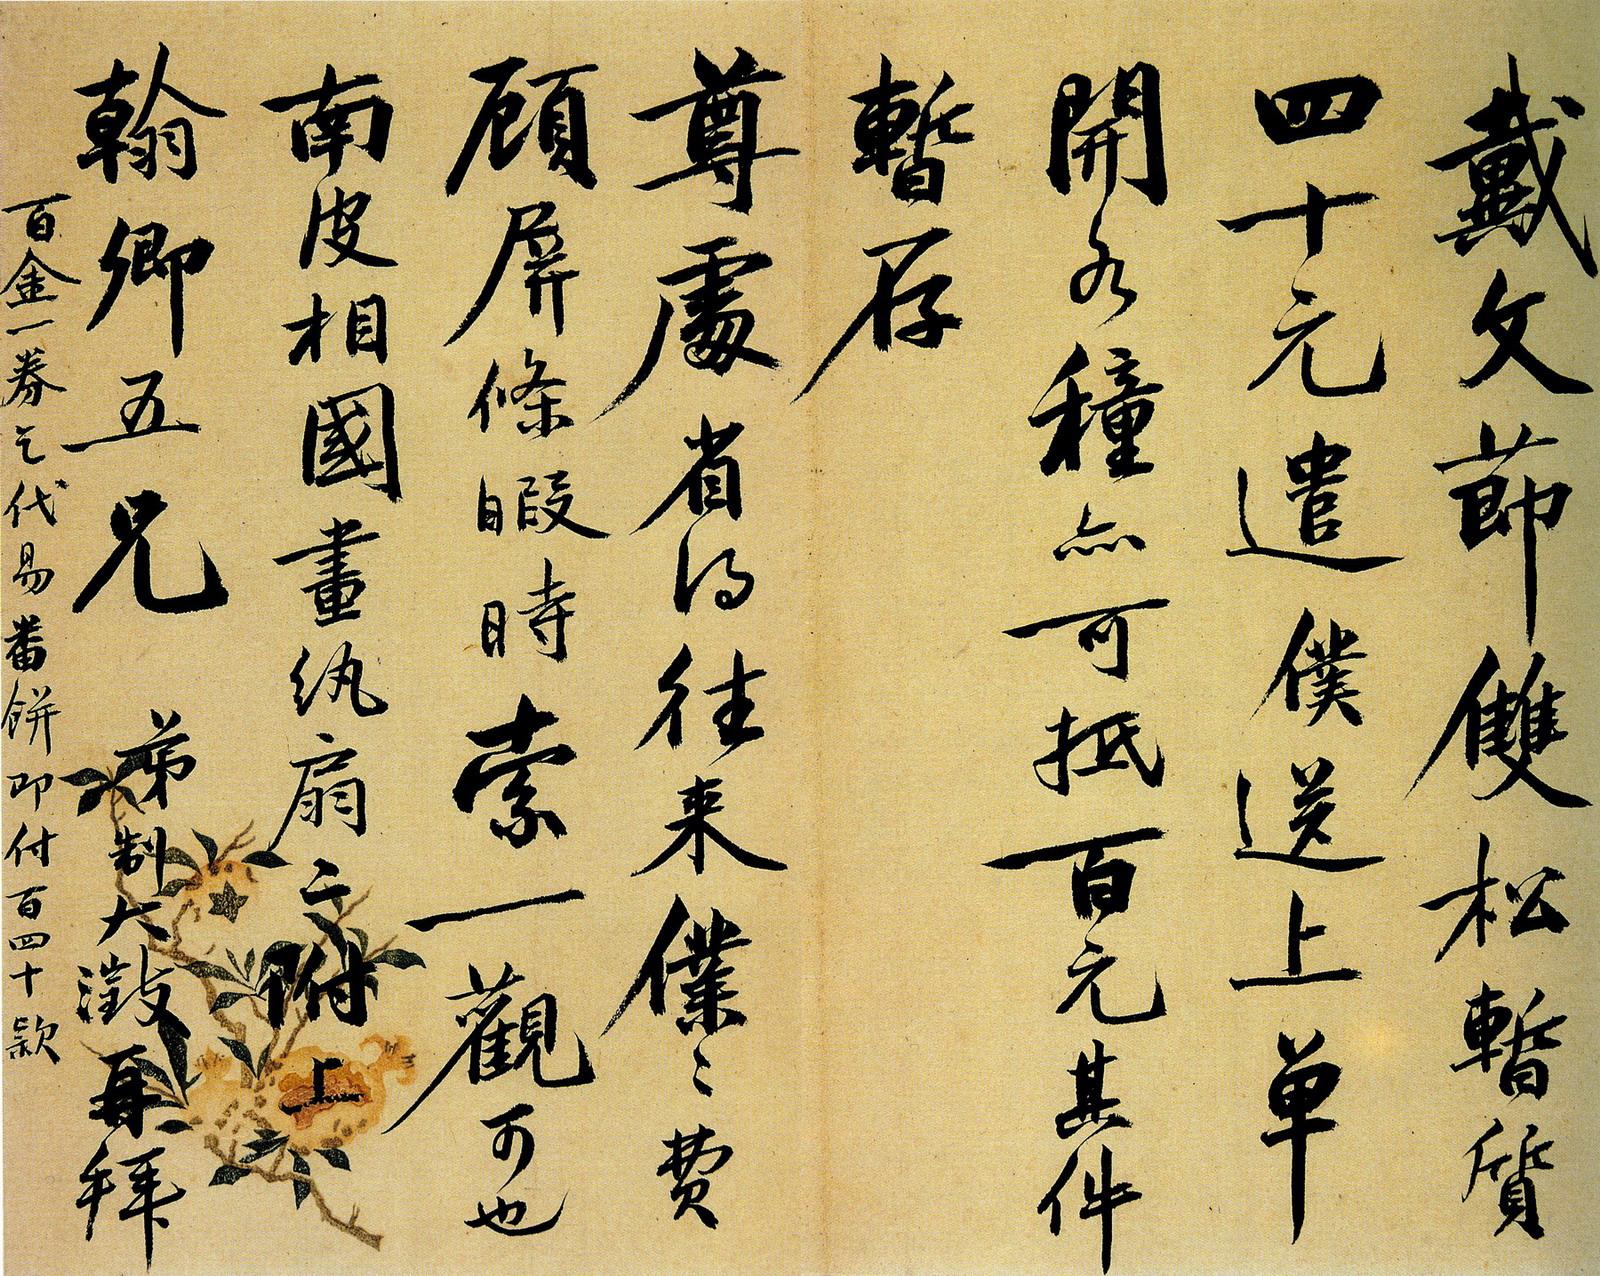 戴文節雙松暫質
四十元遣僕送上單
開各種亦可抵百元其件
暫存
尊處省得往來僕僕之費
顧屏條暇時索一觀可也
南皮相國畫紈扇二附上
翰卿五兄 弟制大澂再拜
百金一券乞代易番餅即付百四十款